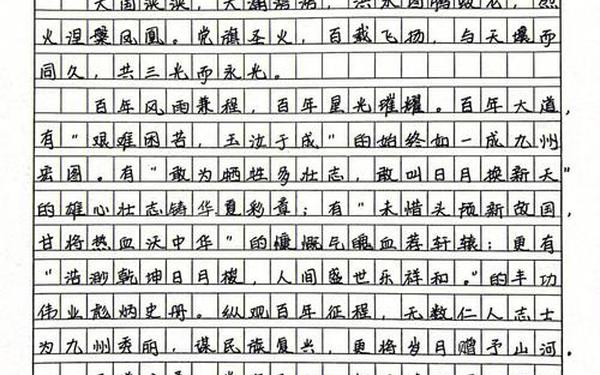 大国泱泱，大潮滂滂，洪水图腾蛟龙，烈
火涅槃凤凰。党旗圣火，百载飞扬，与天壤而
同久，共三光而永光。
百年风雨兼程，百年星光璀耀。百年大道，
有"艰难困苦，玉汝于成"的始终如一成九州
宏图。有"敢为牺牲多壮志，敢叫日月换新天"
的雄心壮志铸华夏彩章；有"未惜头颅新故国，
甘将热血沃中华"的慷慨气魄血荐轩辕；更有
"浩渺乾坤日月梭，人间盛世乐祥和。"的丰功
伟业彪炳史册。纵观百年征程，无数仁人志士
为九州秀丽，谋民族复兴，更将岁月赠予山河。